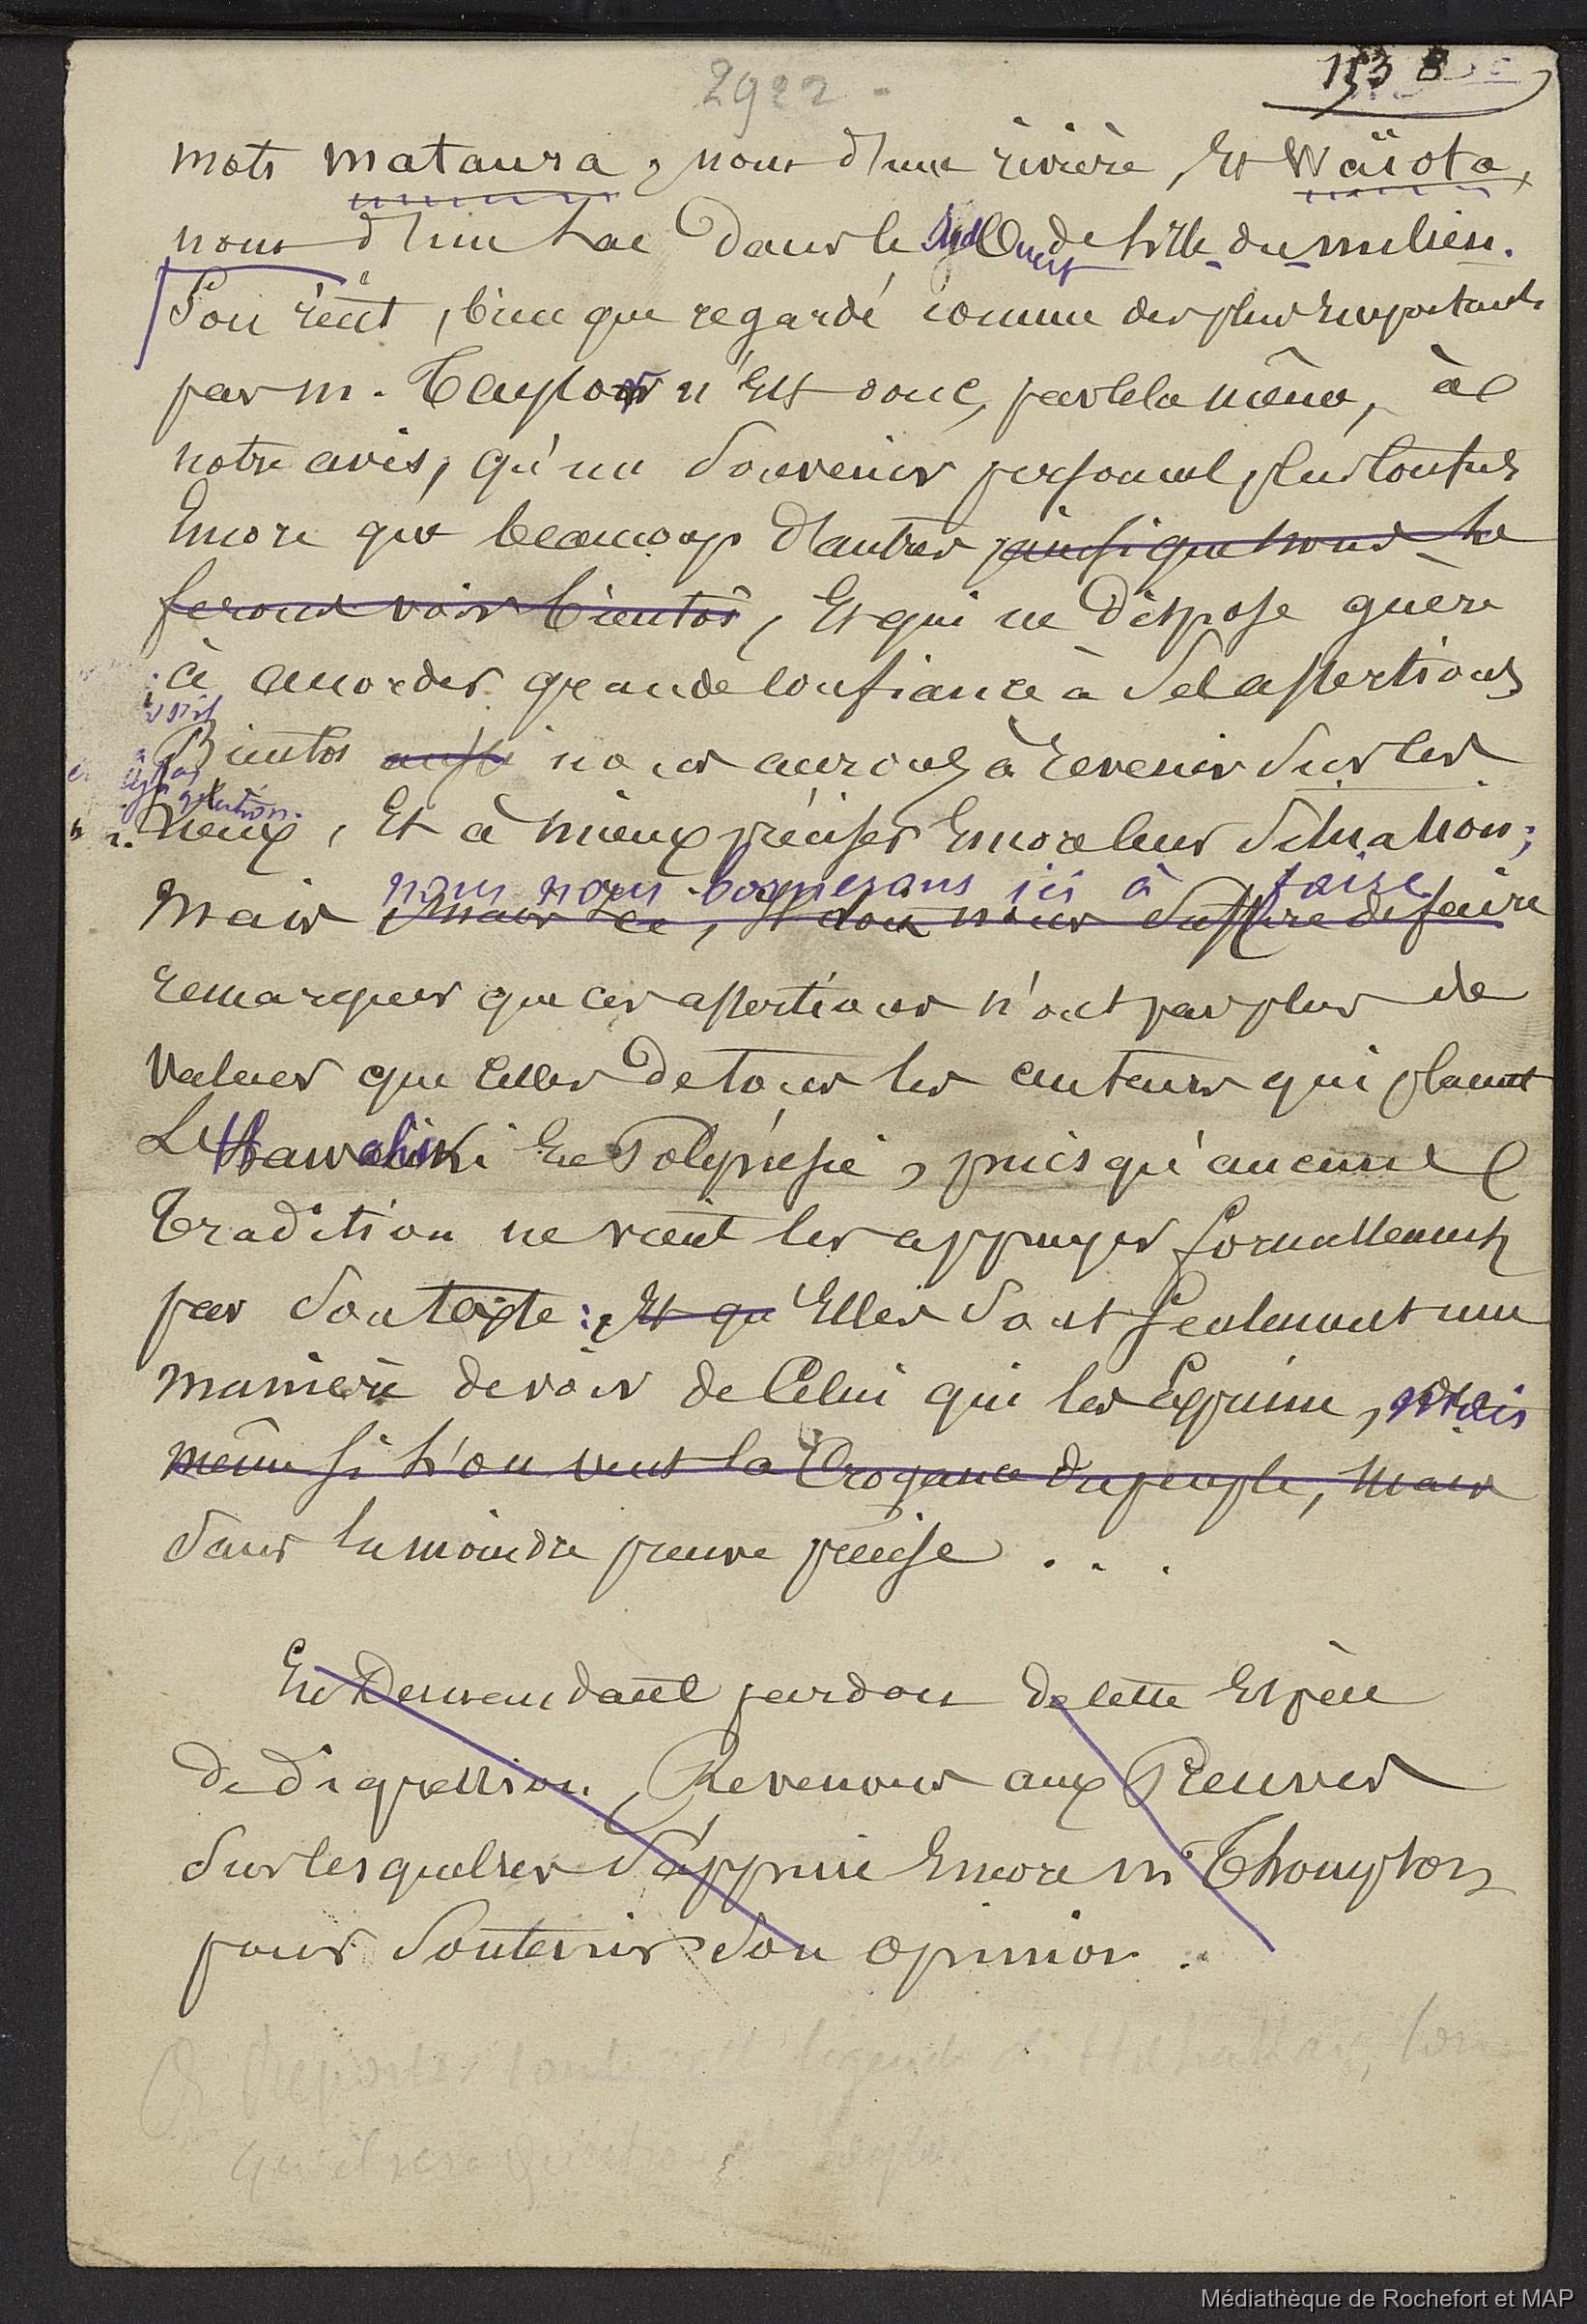 2922 -
153 B
mots mataura, nom d'une rivière, et Waïota,
nom d'un Lac dans le Sud Ouest de l'île du milieu.
Son récit, bien que regardé comme des plus importants
par M. Taylor n'est donc, par cela même, à
notre avis, qu'un souvenir personnel, plus confus
encore que beaucoup d'autres ainsi que nous le
ferons voir bientôt, et qui ne dispose guère
à accorder grande confiance à ses assertions
Bientôt aussi nous aurons à revenir sur les
lieux, et à mieux préciser encore leur situation;
nous nous bornerons ici à faire
mais
remarquer que ces assertions n'ont pas plus de
valeur que celles de tous les auteurs qui placent
L'Hawahiki en Polynésie, puisqu'aucune
tradition ne vient les appuyer formellement
par son texte: et qu'Elles sont seulement une
manière de voir de celui qui les exprime, mais
même si l'on veut la Croyance du peuple, mais
sans la moindre preuve précise . . .
En Demandant pardon de cette espèce
de digression, Revenons aux Preuves
sur lesquelles s'appuie encore Mr Thompson
pour soutenir son opinion.
Médiathèque de Rochefort et MAP